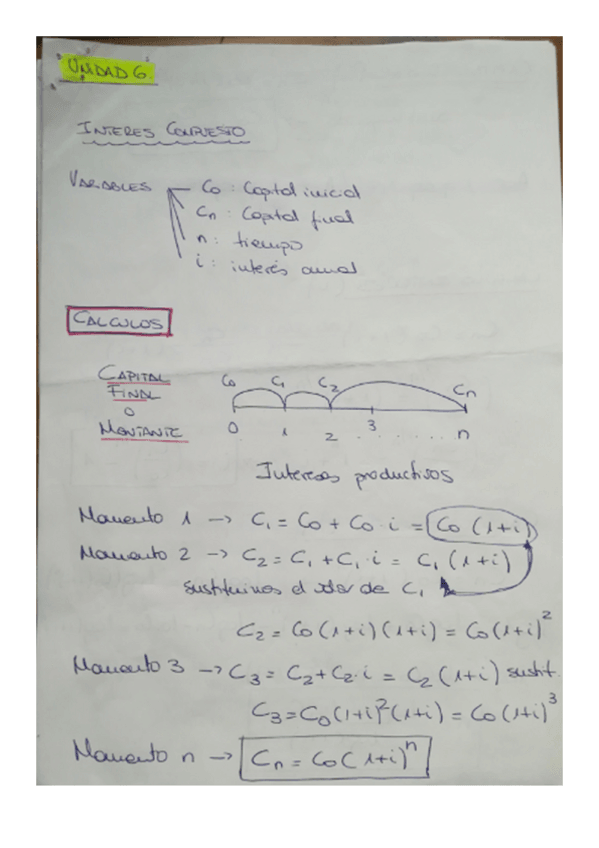 UNIDAD 6.
INTERES COMPUESTO
VARIABLES Co : Capital inicial
Cn : Capital final
n : tiempo
i : interés anual
CALCULOS
CAPITAL
FINAL
O
MONTANTE
Co C₁ C₂ Cn
0 1 2 3 . . . . . . . n
Intereses productivos
Momento 1 -> C₁ = Co + Co · i = Co (1+i)
Momento 2 -> C₂ = C₁ + C₁ · i = C₁ (1+i)
sustituimos el valor de C₁
C₂ = Co (1+i) (1+i) = Co (1+i)²
Momento 3 -> C₃ = C₂ + C₂ · i = C₂ (1+i) sustit.
C₃ = Co (1+i)² (1+i) = Co (1+i)³
Momento n -> Cn = Co (1+i)ⁿ